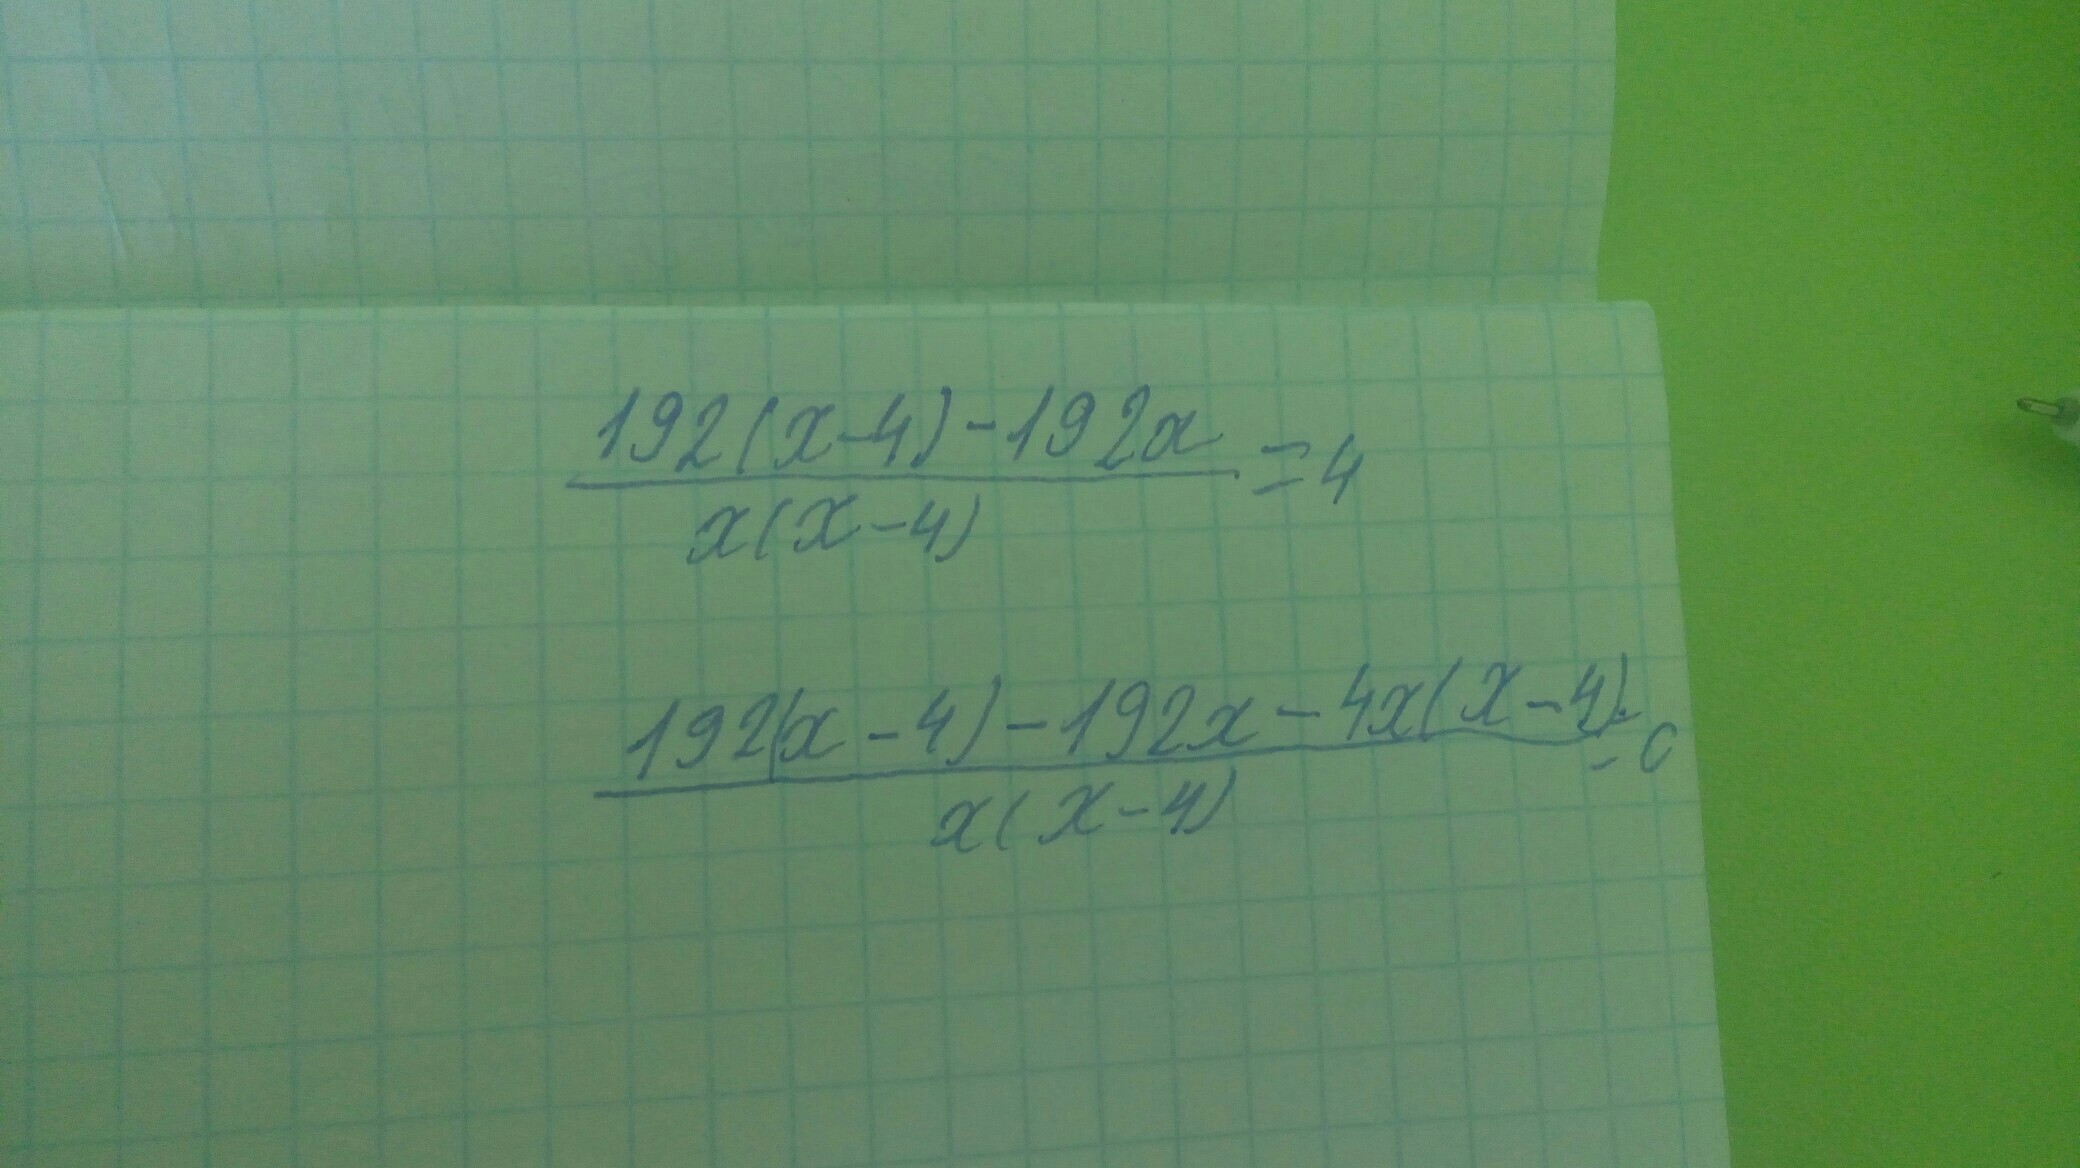 192(x-4)-192x
=4
x(x-4)
192(x-4)-192x-4x(x-4)
=0
x(x-4)